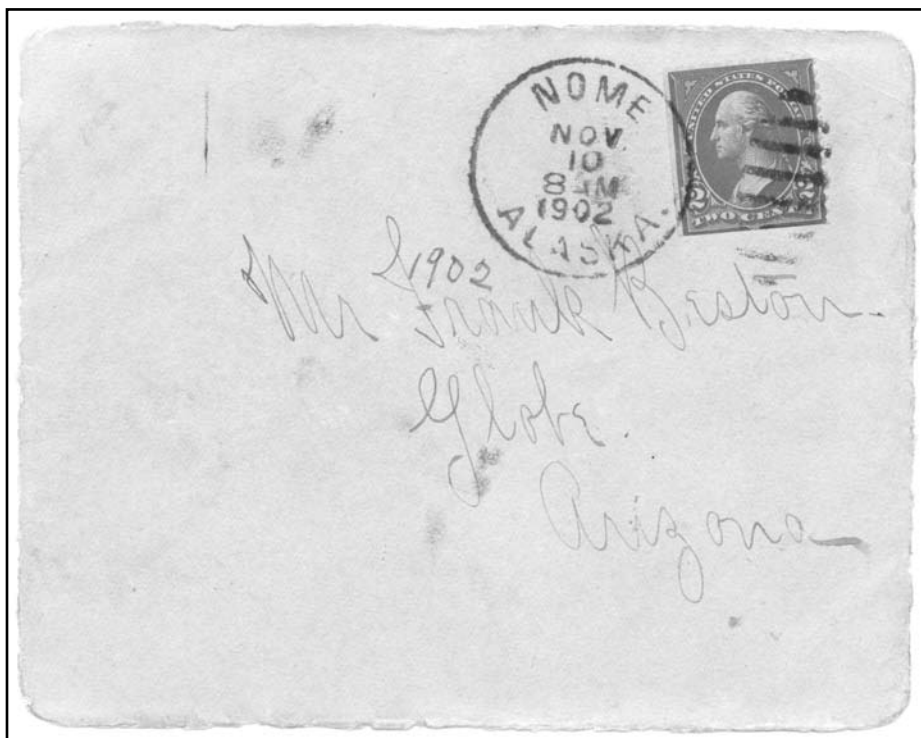 NOME
NOV.
10
8 AM
1902
ALASKA.
UNITED STATES PO
2 TWO CEN 2
1902
Mr Frank Beston.
Globe.
Arizona